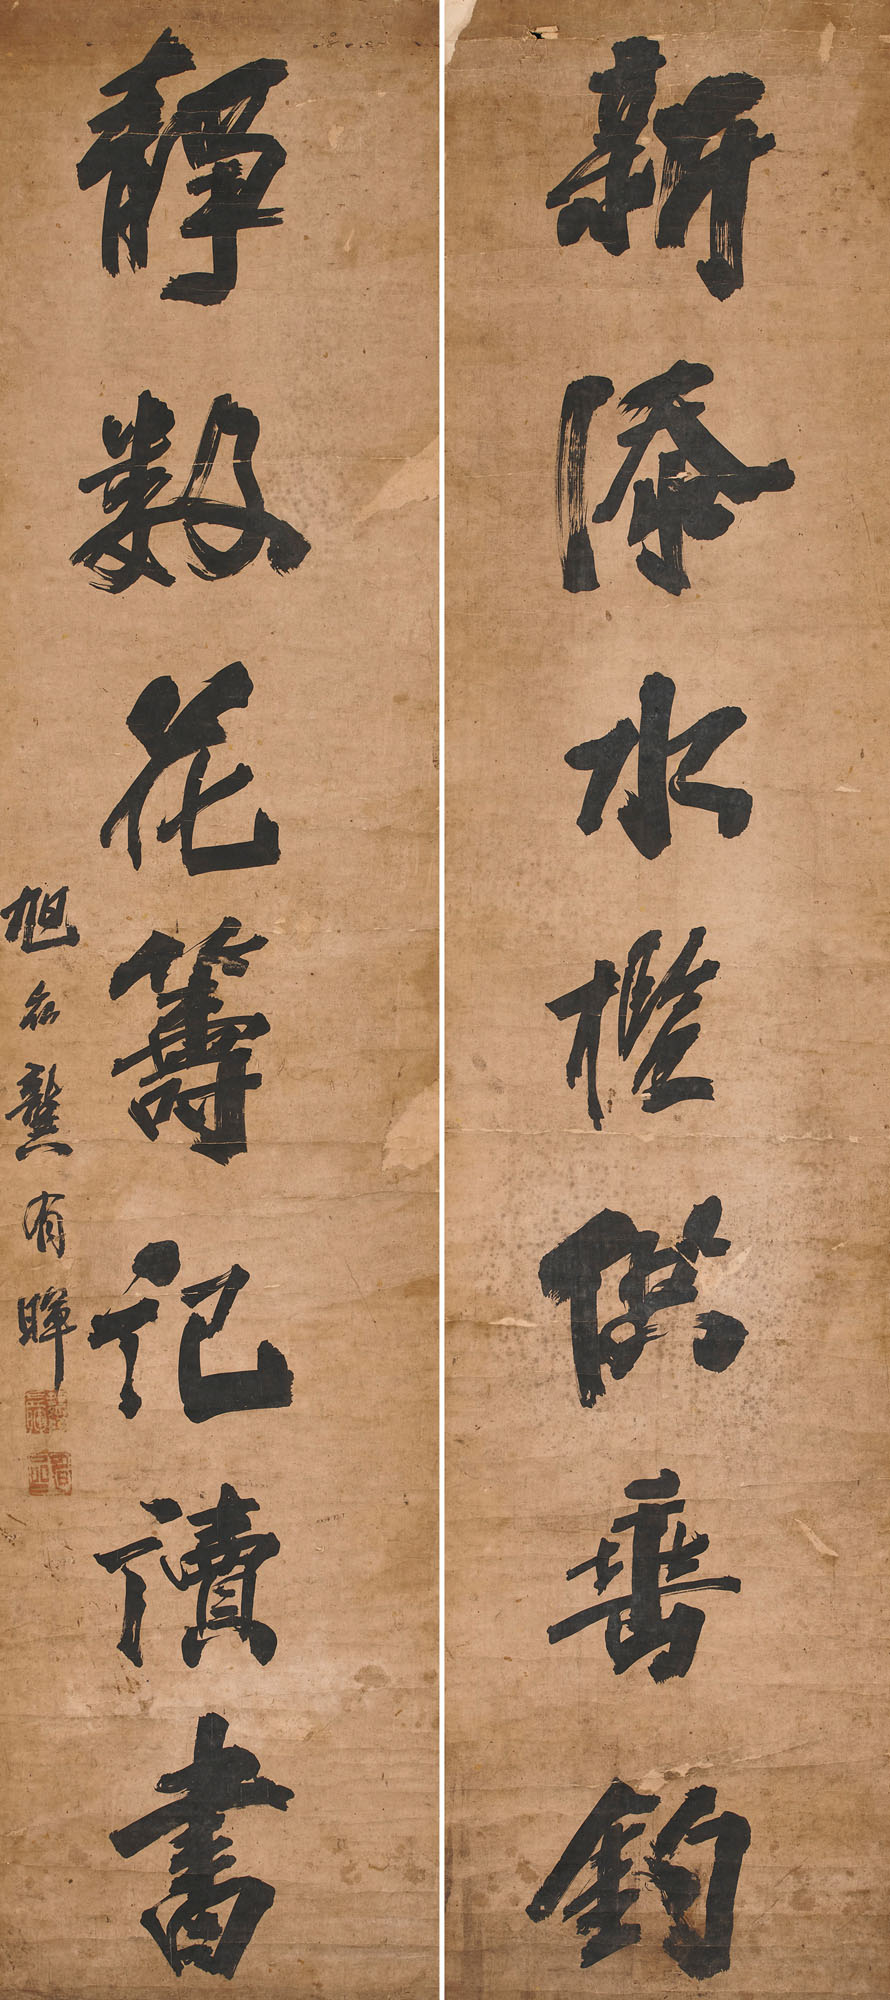 新添水檻供垂釣
靜數花籌記讀書
旭名龔有暉